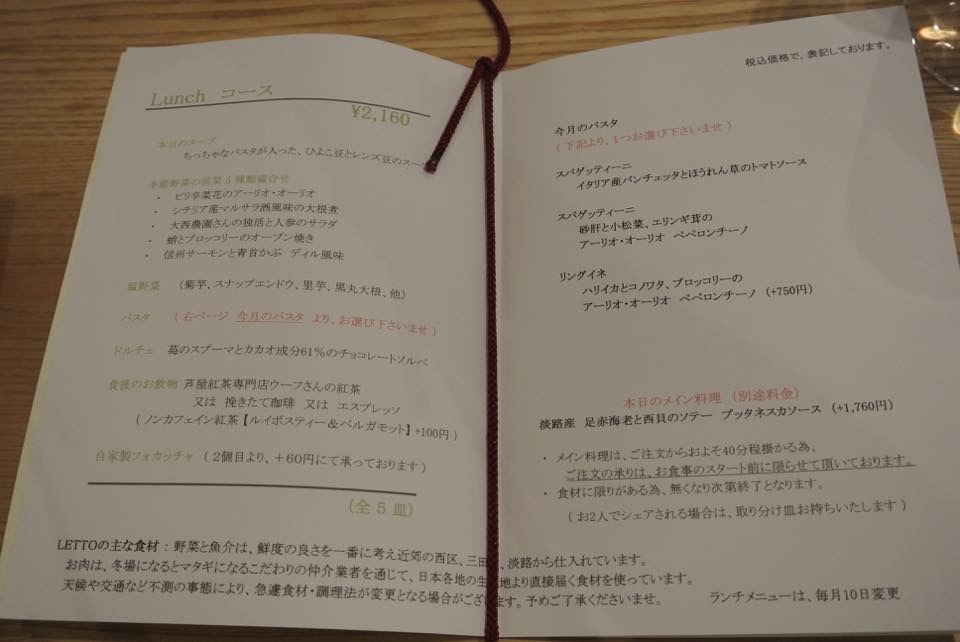 Lunch コース
¥2,160
本日のスープ
ちっちゃなパスタが入った、ひよこ豆とレンズ豆のスープ
季節野菜の前菜5種類盛合せ
・ ピリ辛菜花のアーリオ・オーリオ
・ シチリア産マルサラ酒風味の大根煮
・ 大西農園さんの独活と人参のサラダ
・ 蛸とブロッコリーのオーブン焼き
・ 信州サーモンと青首かぶ ディル風味
温野菜 (菊芋、スナップエンドウ、里芋、黒丸大根、他)
パスタ (右ページ 今月のパスタ より、お選び下さいませ)
ドルチェ 苺のスプーマとカカオ成分61%のチョコレートソルベ
食後のお飲物 芦屋紅茶専門店ウーフさんの紅茶
又は 挽きたて珈琲 又は エスプレッソ
(ノンカフェイン紅茶【ルイボスティー&ベルガモット】+100円)
自家製フォカッチャ (2個目より、+60円にて承っております)
(全5皿)
税込価格で、表記しております。
今月のパスタ
(下記より、1つお選び下さいませ)
スパゲッティーニ
イタリア産パンチェッタとほうれん草のトマトソース
スパゲッティーニ
砂肝と小松菜、エリンギ茸の
アーリオ・オーリオ ペペロンチーノ
リングイネ
ハリイカとコノワタ、ブロッコリーの
アーリオ・オーリオ ペペロンチーノ (+750円)
本日のメイン料理 (別途料金)
淡路産 足赤海老と西貝のソテー プッタネスカソース (+1,760円)
・ メイン料理は、ご注文からおよそ40分程掛かる為、
ご注文の承りは、お食事のスタート前に限らせて頂いております。
・ 食材に限りがある為、無くなり次第終了となります。
(お2人でシェアされる場合は、取り分け皿お持ちいたします)
LETTOの主な食材:野菜と魚介は、鮮度の良さを一番に考え近郊の西区、三田、淡路から仕入れています。
お肉は、冬場になるとマタギになるこだわりの仲介業者を通じて、日本各地の生産地より直接届く食材を使っています。
天候や交通など不測の事態により、急遽食材・調理法が変更となる場合がございます。予めご了承くださいませ。
ランチメニューは、毎月10日変更